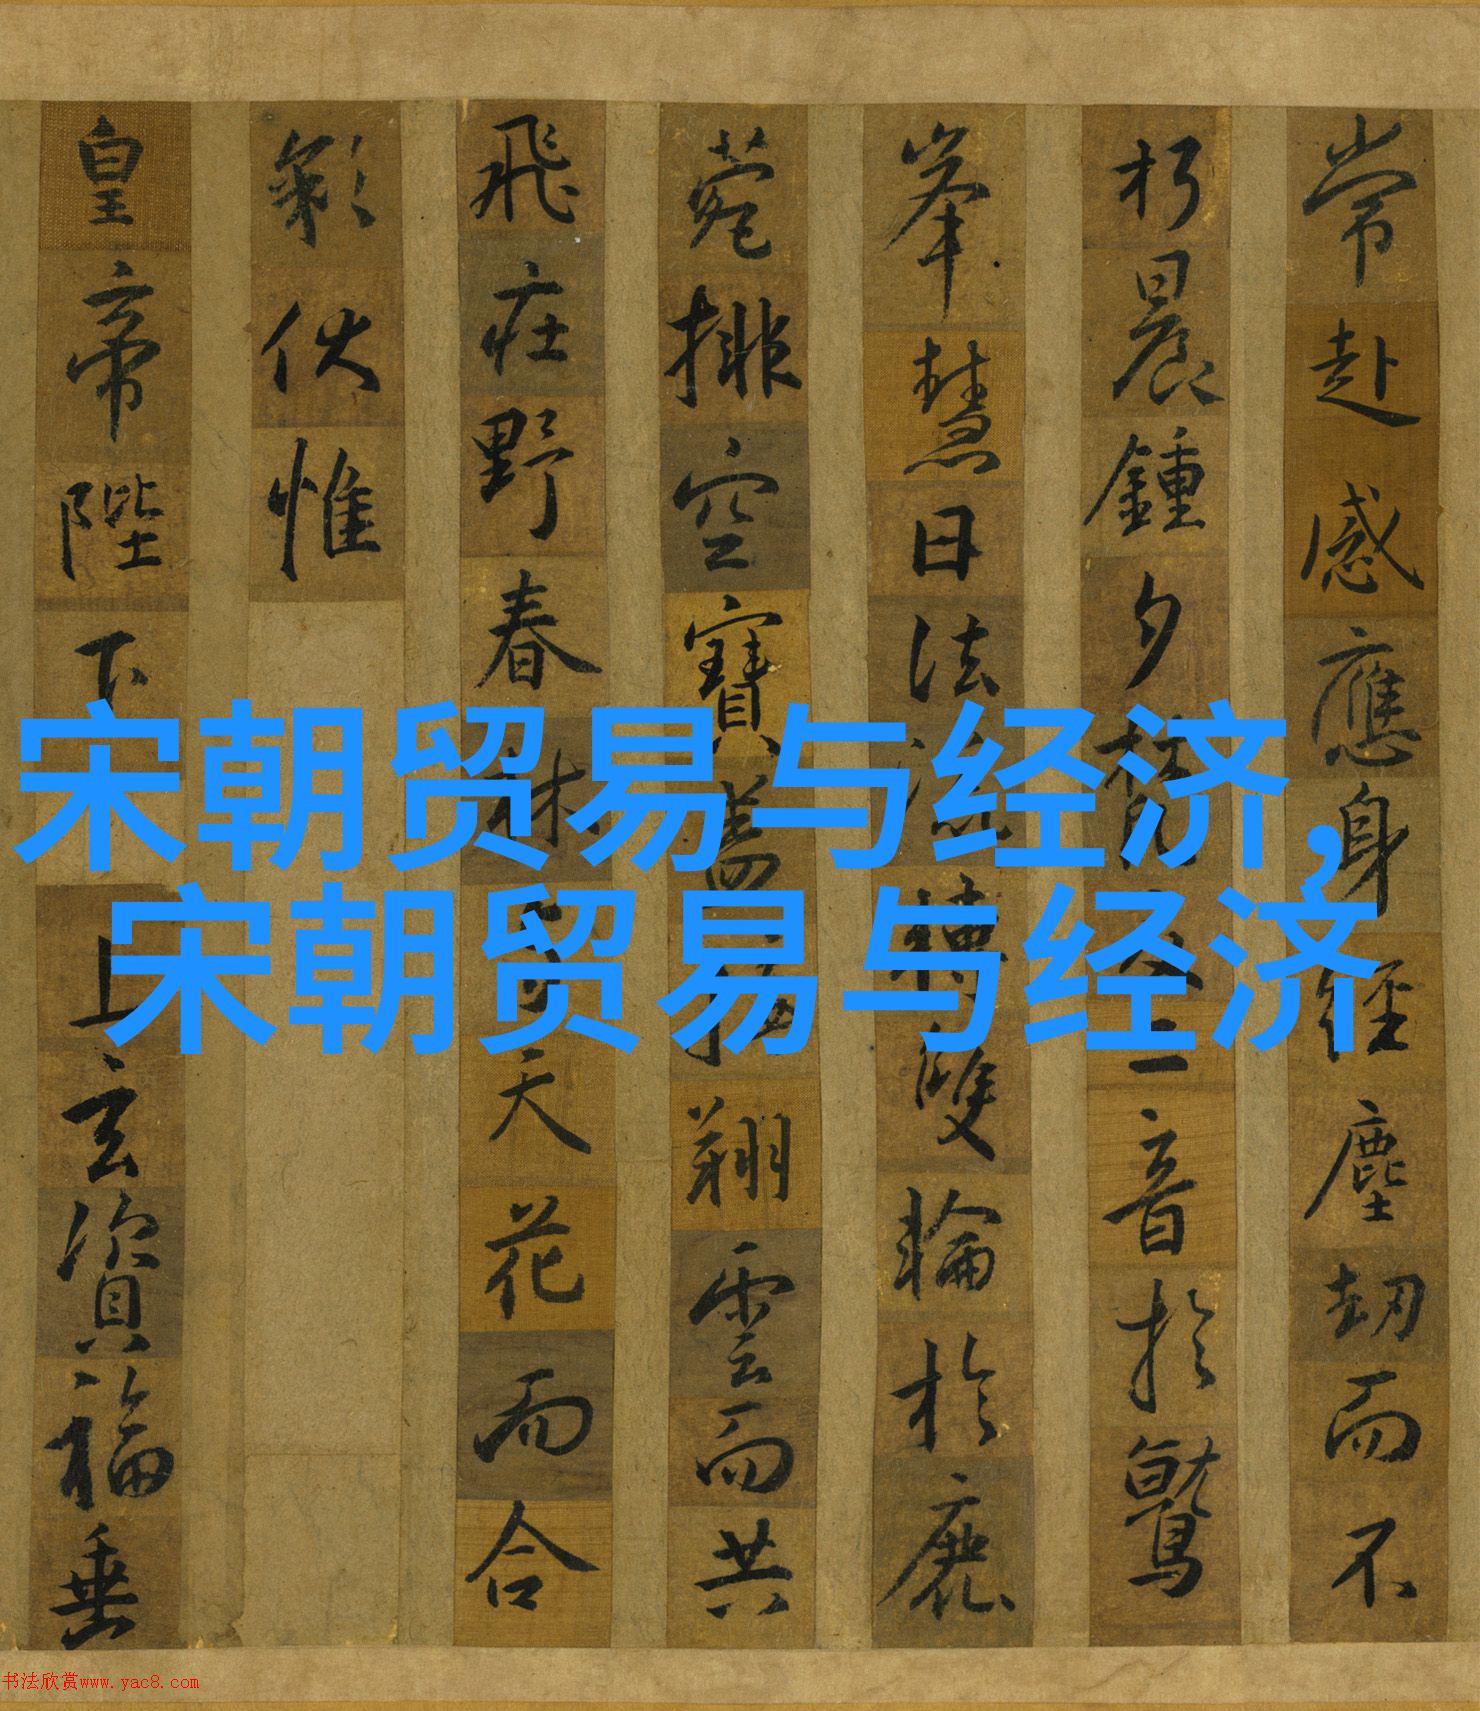 宋朝贸易与经济,
宋朝贸易与经济
常赴感應身經塵劫而不
朽晨鍾夕梵交二音於鷲
峯慧日法流轉雙輪於鹿
菀排空寶蓋接翔雲而共
飛莊野春林天花而合
彩伏惟
皇帝陛下上玄資福垂
书法欣赏www.yac8.com